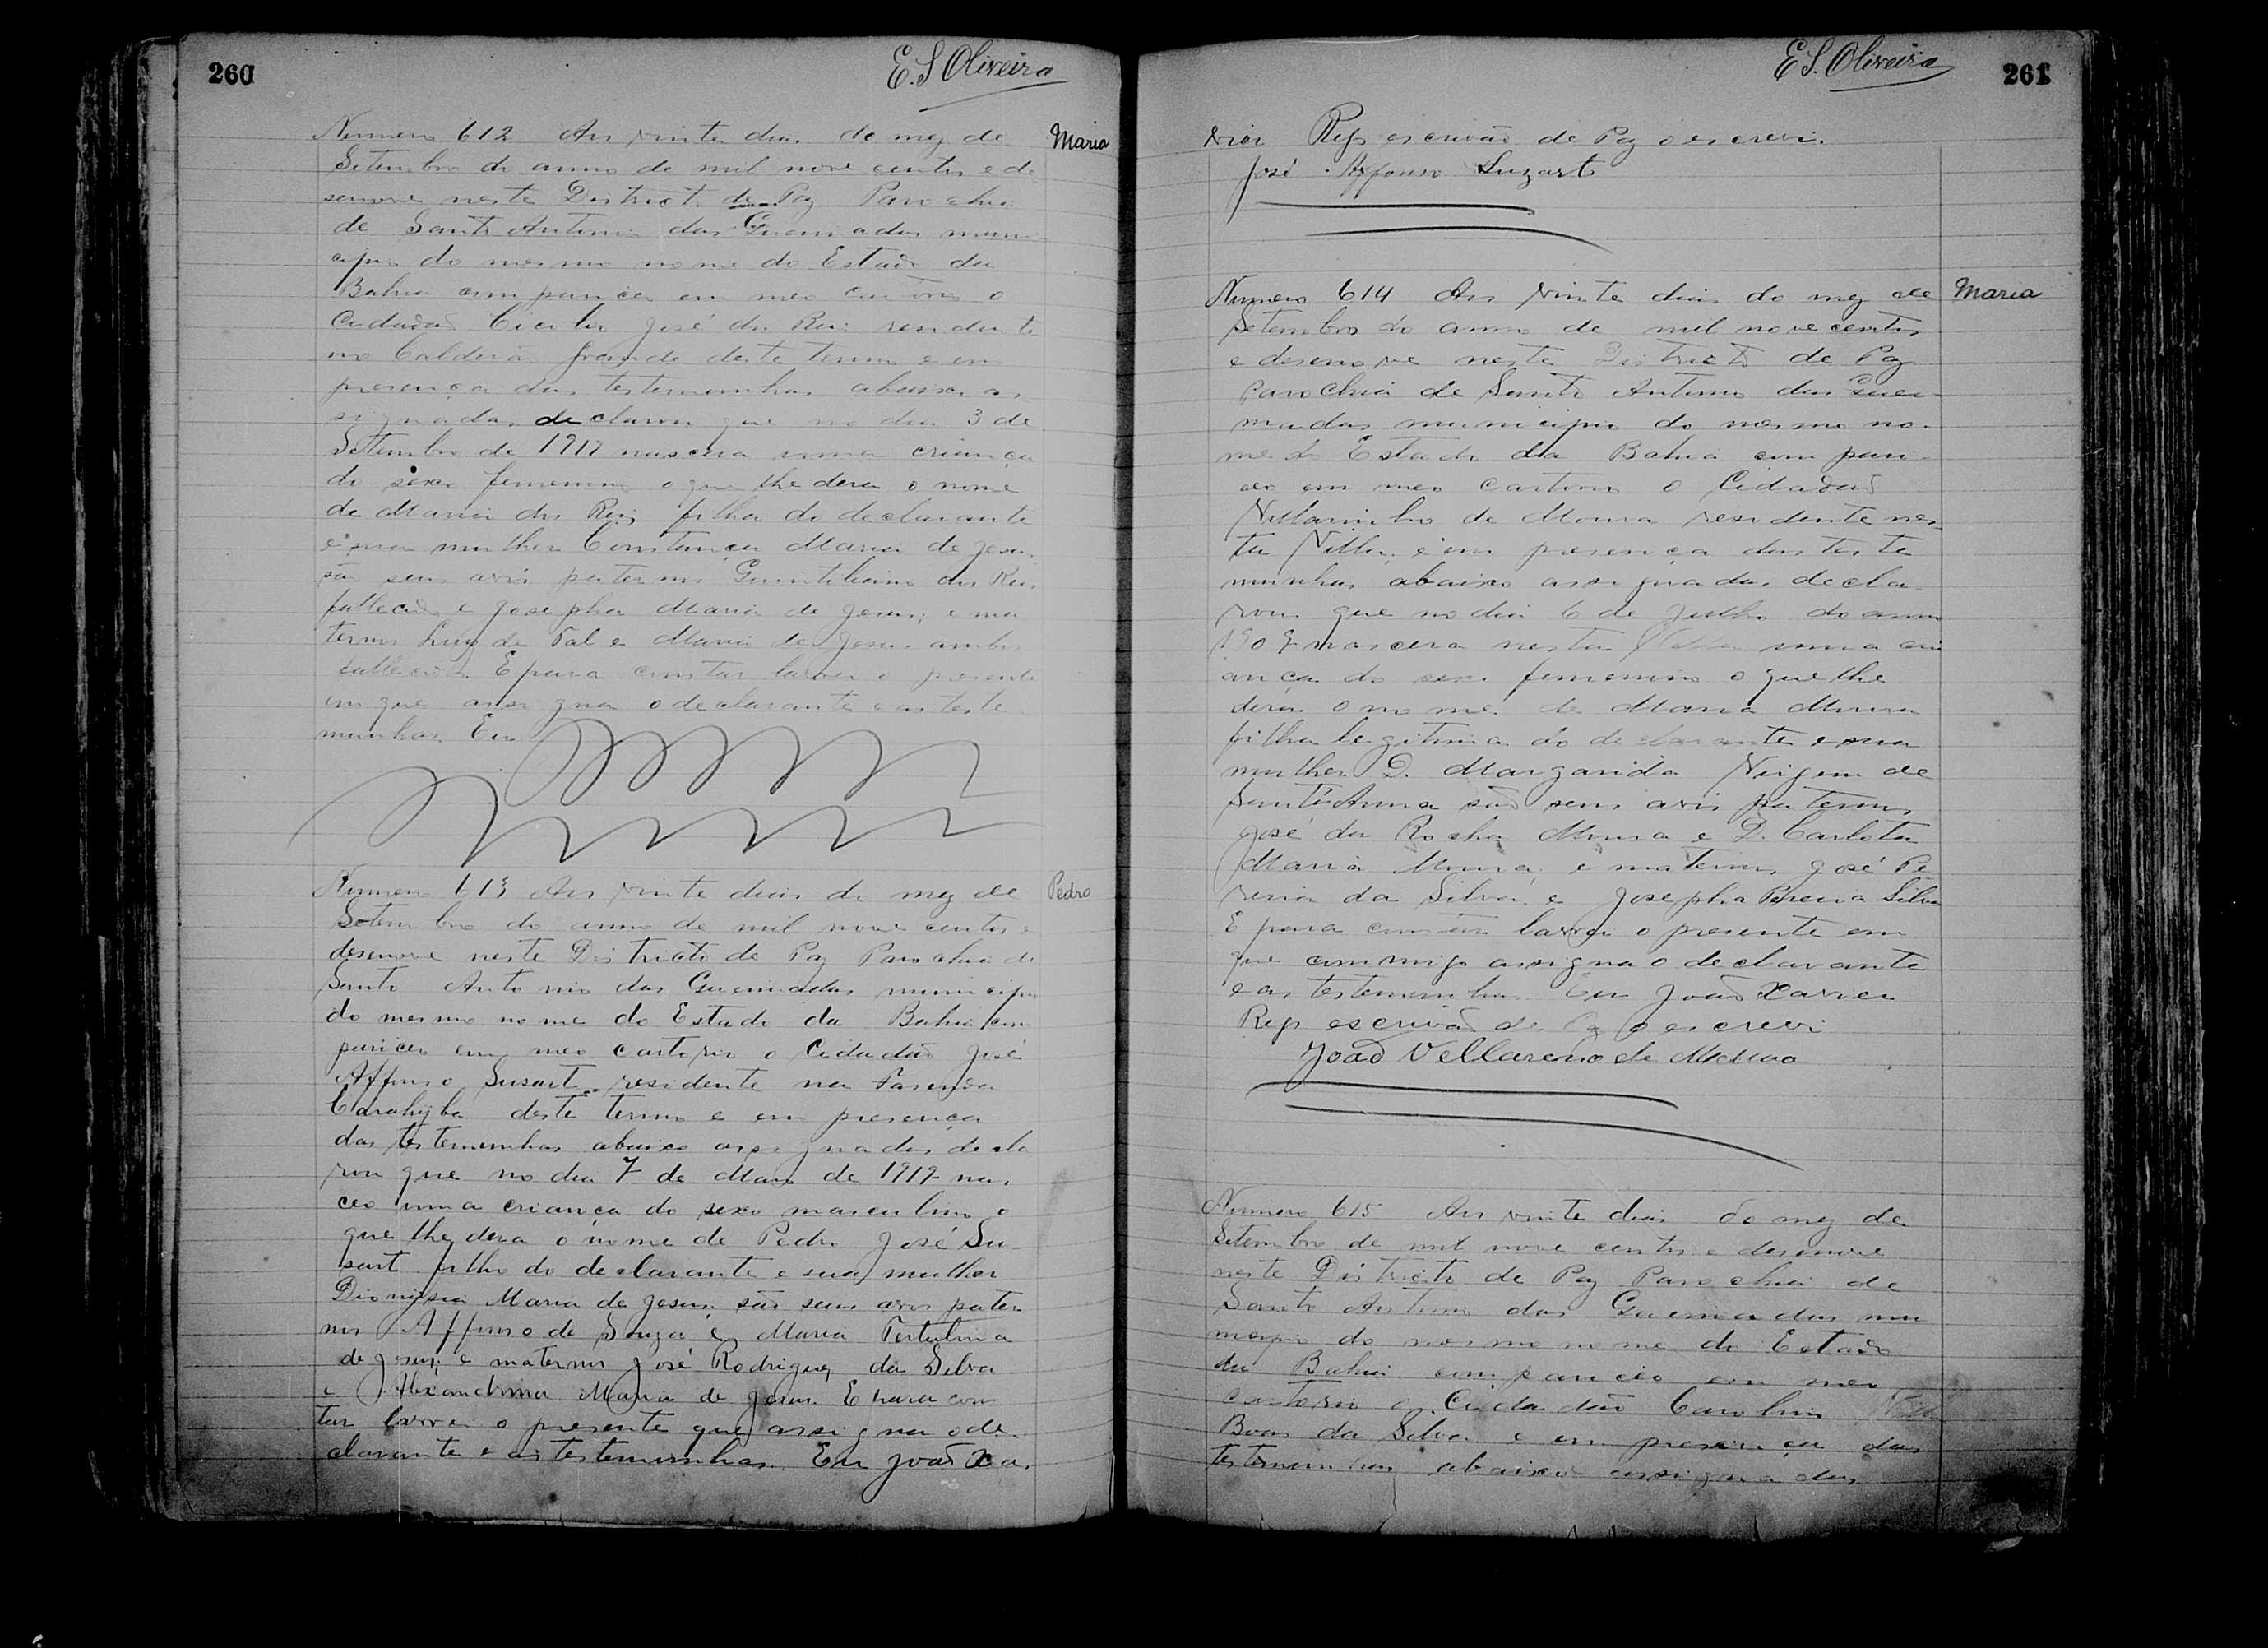 260
E. S Oliveira
Numero 612 Aos vinte dias do mez de
Maria
Setembro do anno de mil nove centos e de
senove neste Districto de Paz Parochia
de Santo Antonio das Queimadas muni
cipio do mesmo nome do Estado da
Bahia compareceu em meo cartorio o
Cidadão José dos Reis residente
no Calderão grande deste termo e em
presença das testemunhas abaixo as
signadas declarou que no dia 3 de
Setembro de nascera uma criança
do sexo femenino o que lhe dera o nome
de Maria dos Reis filha do declarante
e sua mulher Constança Maria de Jesus
são seus avós paternos dos Reis
fallecido e Josepha Maria de Jesus; e ma
ternos Luiz de Tal e Maria de Jesus ambos
fallecidos. E para constar lavrei o presente
em que assigna o declarante e as teste
munhas. Eu
Numero 613 Aos vinte dias do mez de
Pedro
Setembro do anno de mil nove centos e
desenove neste Districto de Paz Parochia de
Santo Antonio das Queimadas municipio
do mesmo nome do Estado da Bahia com
pariceo em meo cartorio o Cidadão José
Affonso Susart residente na Fazenda
Carahyba deste termo e em presença
das testemunhas abaixo assignadas decla
rou que no dia 7 de Maio de nas
ceo uma criança do sexo masculino o
que lhe dera o nome de Pedro José Su
sart filho do declarante e sua mulher
Dionysia Maria de Jesus são seus avos pater
nos Affonso de Souza e Maria Tertulina
de Jesus; e maternos José Rodrigues da Silva
e Alexandrina Maria de Jesus. E para cons
tar lavrei o presente que assigna o de
clarante e as testemunhas. Eu João Xa.
E S. Oliveira
261
vier Rego escrivão de Paz o escrevi.
José Affonso Suzart
Numero 614 Aos vinte dias do mez de
Maria
Setembro do anno de mil nove centos
e desenove neste Districto de Paz
Parochia de Santo Antonio das Quei
madas municipio do mesmo no
me do Estado da Bahia com pari
ceo em meo cartorio o Cidadão
Villarinho de Moura residente nes
ta Villa, e em presença das teste
munhas abaixo assignadas decla
rou que no dia 6 de Julho do anno
nascera nesta Villa uma cri
ança do sexo femenino o que lhe
dera o nome de Maria Moura
filha legitima do declarante e sua
mulher D. Margarida Virgem de
Sant'Anna são seus avós paternos
José da Rocha Moura e D. Carlota
Maria Moura, e maternos José Pe
reira da Silva e Josepha Pereira Silva
E para constar lavrei o presente em
que commigo assigna o declarante
e as testemunhas. Eu João Xavier
Rego escrivão de Paz o escrevi
João de Moura
Numero 615 Aos vinte dias do mez de
Setembro de mil nove centos e desenove
neste Districto de Paz Parochia de
Santo Antonio das Queimadas mu
nicipio do mesmo nome do Estado
da Bahia compariceo em meu
cartorio o Cidadão Carolino Villas
Boas da Silva e em presença das
testemunhas abaixo assignadas